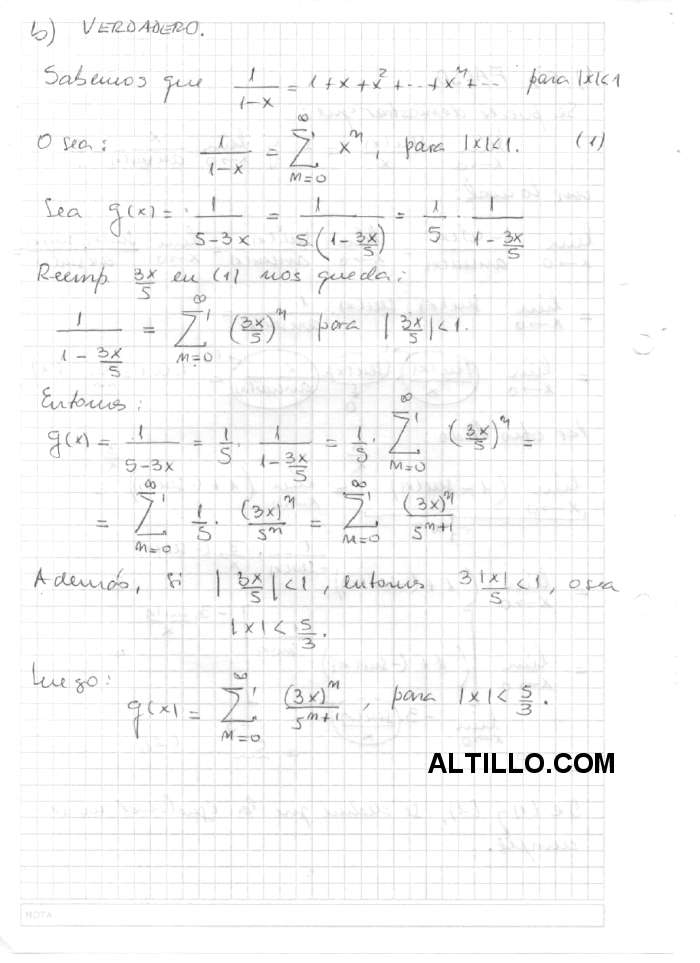 b) VERDADERO.
Sabemos que 1/(1-x) = 1 + x + x² + ... + xⁿ + ... para |x|<1
O sea: 1/(1-x) = ∑_{n=0}^{∞} xⁿ, para |x|<1. (1)
Sea g(x) = 1/(5-3x) = 1/(5·(1-3x/5)) = 1/5 · 1/(1-3x/5)
Reemp. 3x/5 en (1) nos queda:
1/(1-3x/5) = ∑_{n=0}^{∞} (3x/5)ⁿ para |3x/5|<1.
Entonces:
g(x) = 1/(5-3x) = 1/5 · 1/(1-3x/5) = 1/5 · ∑_{n=0}^{∞} (3x/5)ⁿ =
= ∑_{n=0}^{∞} 1/5 · (3x)ⁿ/5ⁿ = ∑_{n=0}^{∞} (3x)ⁿ/5ⁿ⁺¹
Además, si |3x/5|<1, entonces 3|x|/5<1, o sea
|x| < 5/3.
Luego:
g(x) = ∑_{n=0}^{∞} (3x)ⁿ/5ⁿ⁺¹, para |x| < 5/3.
ALTILLO.COM
NOTA